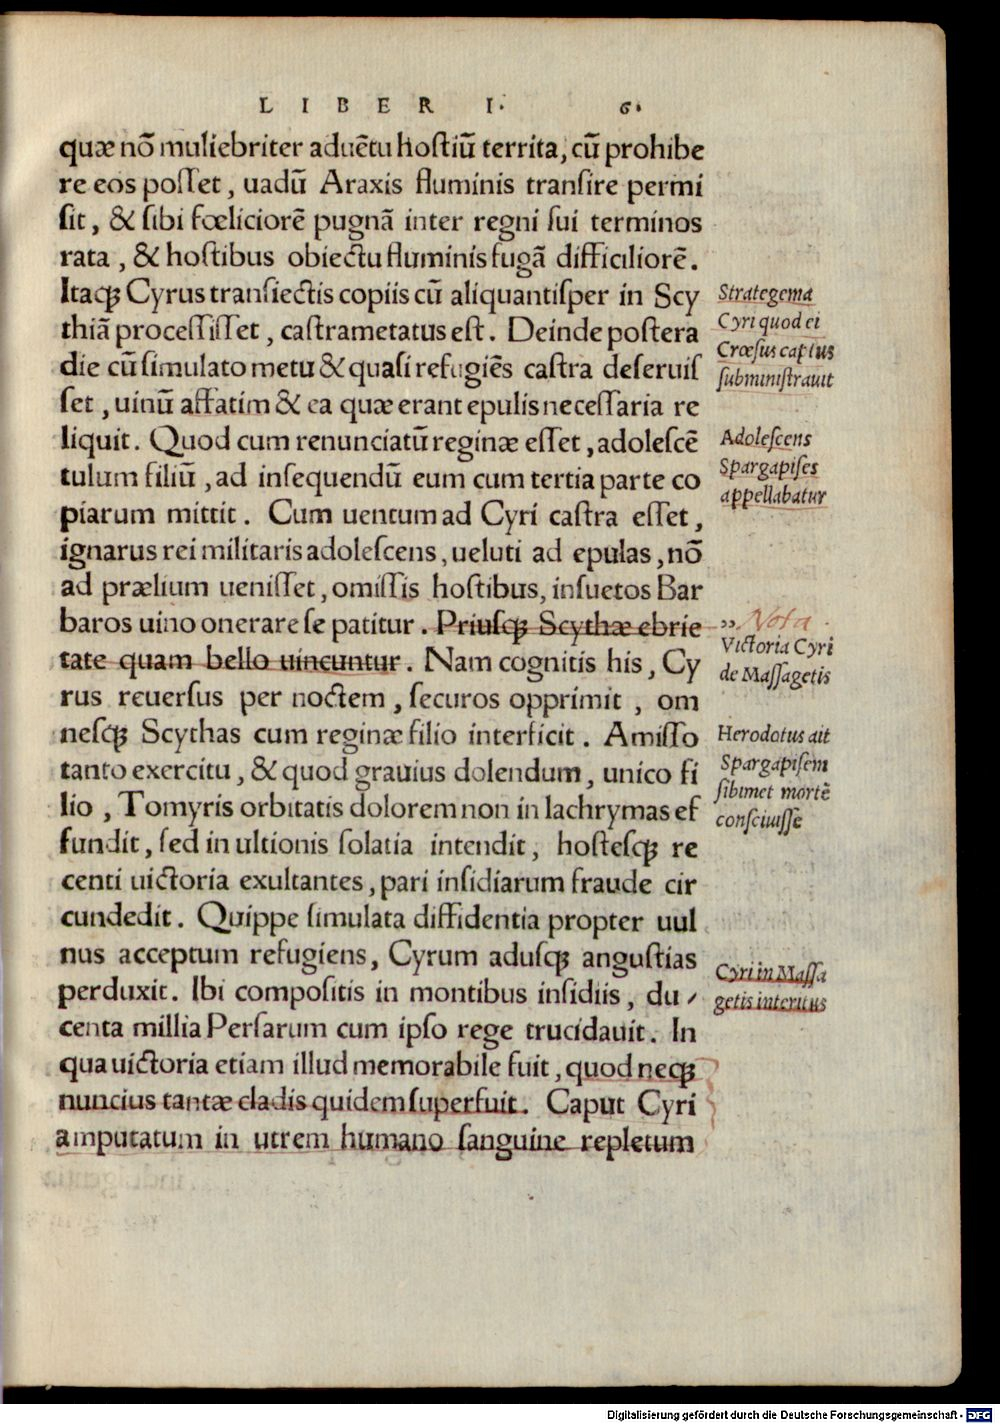 LIBER I. 6.
quæ nõ muliebriter aduẽtu hostiũ territa, cũ prohibe
re eos posset, uadũ Araxis fluminis transire permi
sit, & sibi fœliciorẽ pugnã inter regni sui terminos
rata, & hostibus obiectu fluminis fugã difficiliorẽ.
Itaqꝫ Cyrus transiectis copiis cũ aliquantisper in Scy
thiã processisset, castrametatus est. Deinde postera
die cũ simulato metu & quasi refugiẽs castra deseruis
set, uinũ affatim & ea quæ erant epulis necessaria re
liquit. Quod cum renunciatũ reginæ esset, adolescẽ
tulum filiũ, ad insequendũ eum cum tertia parte co
piarum mittit. Cum uentum ad Cyri castra esset,
ignarus rei militaris adolescens, ueluti ad epulas, nõ
ad prælium uenisset, omissis hostibus, insuetos Bar
baros uino onerare se patitur. Priusqꝫ Scythæ ebrie
tate quam bello uincuntur. Nam cognitis his, Cy
rus reuersus per noctem, securos opprimit, om
nesqꝫ Scythas cum reginæ filio interficit. Amisso
tanto exercitu, & quod grauius dolendum, unico fi
lio, Tomyris orbitatis dolorem non in lachrymas ef
fundit, sed in ultionis solatia intendit, hostesqꝫ re
centi uictoria exultantes, pari insidiarum fraude cir
cundedit. Quippe simulata diffidentia propter uul
nus acceptum refugiens, Cyrum adusqꝫ angustias
perduxit. Ibi compositis in montibus insidiis, du
centa millia Persarum cum ipso rege trucidauit. In
qua uictoria etiam illud memorabile fuit, quod neqꝫ
nuncius tantæ cladis quidem superfuit. Caput Cyri
amputatum in utrem humano sanguine repletum
Strategema
Cyri quod ei
Crœsus captus
subministrauit
Adolescens
Spargapises
appellabatur
,, Nota.
Victoria Cyri
de Massagetis
Herodotus ait
Spargapisem
sibimet mortẽ
consciuisse
Cyri in Massa
getis interitus
Digitalisierung gefördert durch die Deutsche Forschungsgemeinschaft - DFG